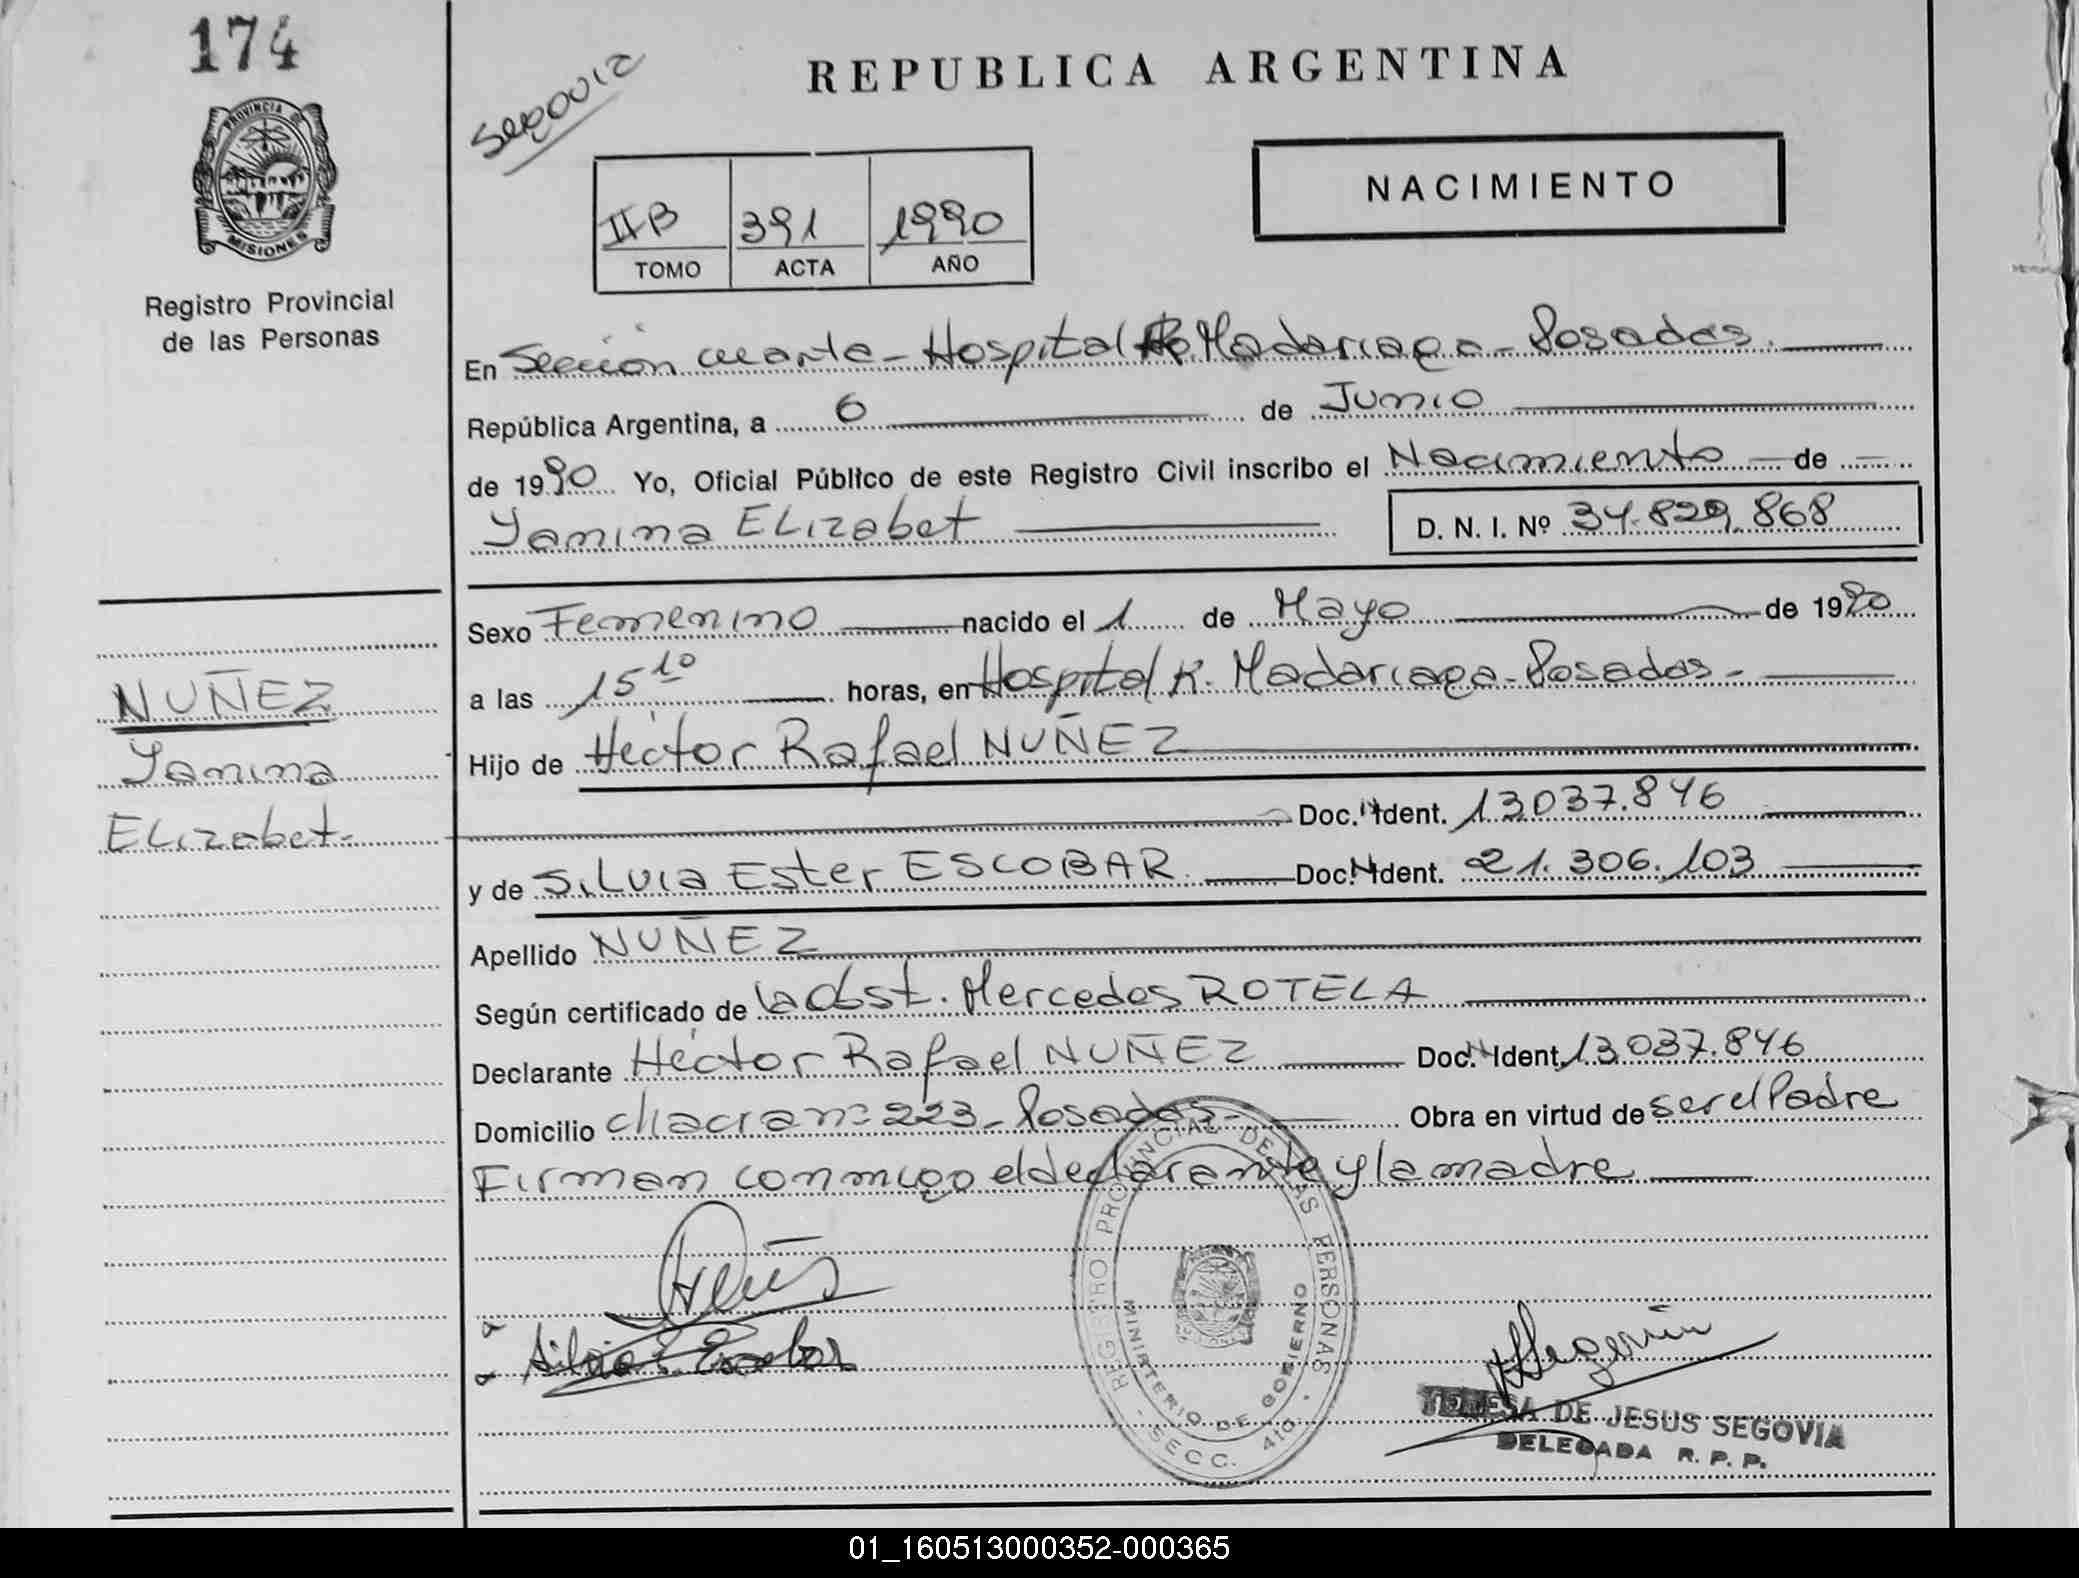 174
PROVINCIA DE
MISIONES
Registro Provincial
de las Personas
NUÑEZ
Yanina
ELizabet-
Segovia
REPUBLICA ARGENTINA
IIB 391 1990
TOMO ACTA AÑO
NACIMIENTO
En Sección cuarta - Hospital R. Madariaga - Posadas.
República Argentina, a 6 de Junio
de 1990 Yo, Oficial Público de este Registro Civil inscribo el Nacimiento - de -
Yanina ELizabet D. N. I. Nº 34.829.868
Sexo Femenino nacido el 1 de Mayo de 1990
a las 15 10 horas, en Hospital R. Madariaga - Posadas -
Hijo de Héctor Rafael NUÑEZ
Doc. Ident. 13037.846
y de SiLvia Ester ESCOBAR Doc. Ident. 21.306.103
Apellido NUÑEZ
Según certificado de la Obst. Mercedes ROTELA
Declarante Héctor Rafael NUÑEZ Doc. Ident. 13037.846
Domicilio chacra nº 223 - Posadas - Obra en virtud de ser el Padre
Firman conmigo el declarante y la madre
REGISTRO PROVINCIAL DE LAS PERSONAS
MINISTERIO DE GOBIERNO
- SECC. 4ta. -
Silvia E. Escobar
TERESA DE JESUS SEGOVIA
DELEGADA R. P. P.
01_160513000352-000365